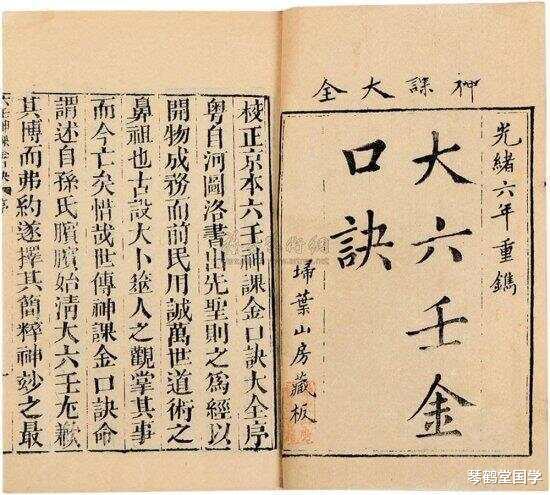 神課大全
光緒六年重鐫
大六壬金
口訣
埽葉山房藏板
校正京本六壬神課金口訣大全序
粵自河圖洛書出先聖則之為經以
開物成務而前民用誠萬世道術之
鼻祖也古設大卜簭人之觀掌其事
而今亡矣惜哉世傳神課金口訣命
謂述自孫氏臏臏始清大六壬尤歉
其博而弗約遂擇其簡粹神妙之最
六壬神課金口訣 序
琴鹤堂国学